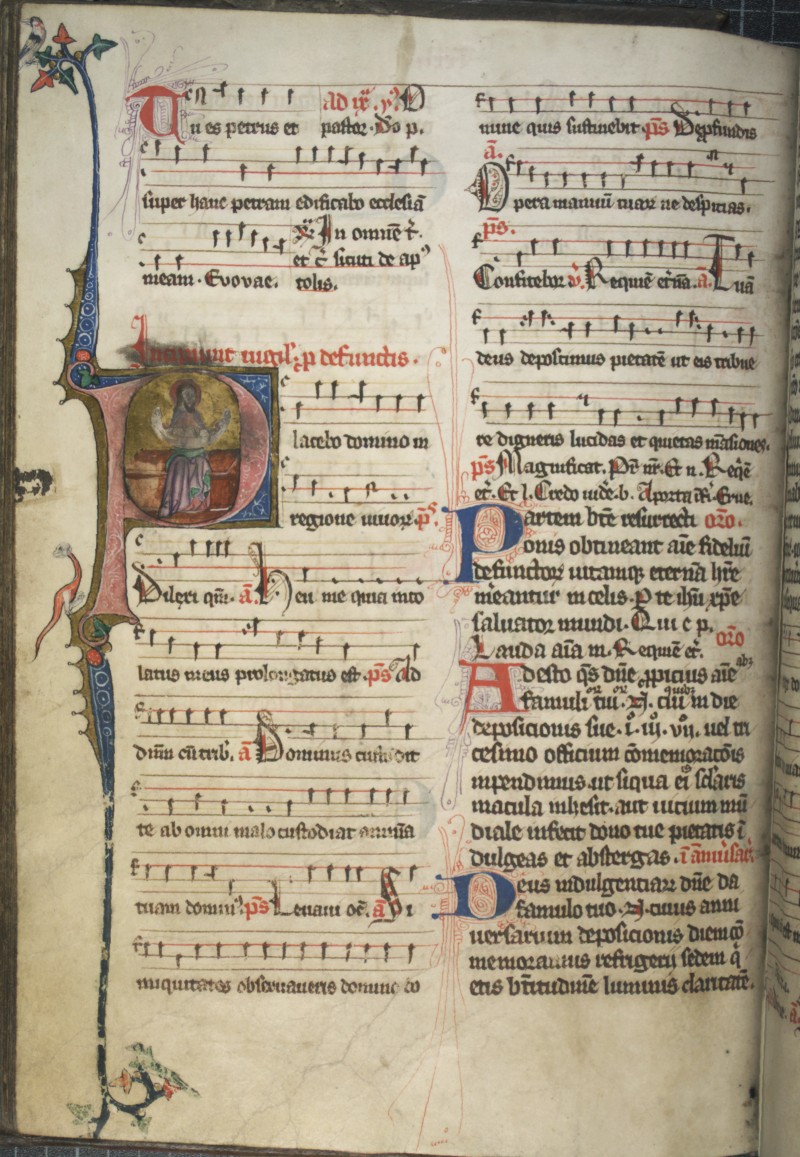 Tu es petrus et pastor. Do p.
super hanc petram edificabo ecclesiā
In omnē t.
et c̄ sicut de apo
meam. Evovae. tolis.
Incipiunt vigil. p defunctis.
Placebo domino in
regione vivoꝝ. ps
Dilexi qm̄. ā. Heu me quia inco
latus meus prolongatus est. ps Ad
dn̄m cū trib. ā Dominus custodit
te ab omni malo custodiat animā
tuam domin ps Levavi oc. ā Si
iniquitates observaveris domine do
mine quis sustinebit. ps De pfundis
ā.
Opera manuū tuaꝝ ne despicias.
ps.
Confitebor v. Requiē etnā. ā. Tuā
deus deposcimus pietatē ut eis tribue
re digneris lucidas et quietas māsiones.
ps Magnificat. Pr̄ nr̄. Et n. Reqē
et̄. Et l. Credo vide. b. A porta īf. Erue.
Partem btē resurrecti orō.
onis obtineant aīe fideliū
defunctoꝝ vitamqꝫ eternā hr̄e
meantur in celis. P te ihū xp̄e
salvator mundi. Qui c p.
Lauda aīa m. Requiē et̄. orō
Adesto qs dn̄e ꝓpicius aīe
famuli tui. N. cui in die
deposicionis sue. i. iii. vii. vel tri
cesimo officium cōmemoracōis
inpendimus. ut siqua ei sclaris
macula inhesit. aut vicium mū
diale infecit dono tue pietatis ī
dulgeas et abstergas. ī
Deus indulgentiaꝝ dn̄e da
famulo tuo. N. cuius anni
versarium deposicionis diem cō
memoramus refrigerii sedem q̄
etis btītudinē luminis claritatē.